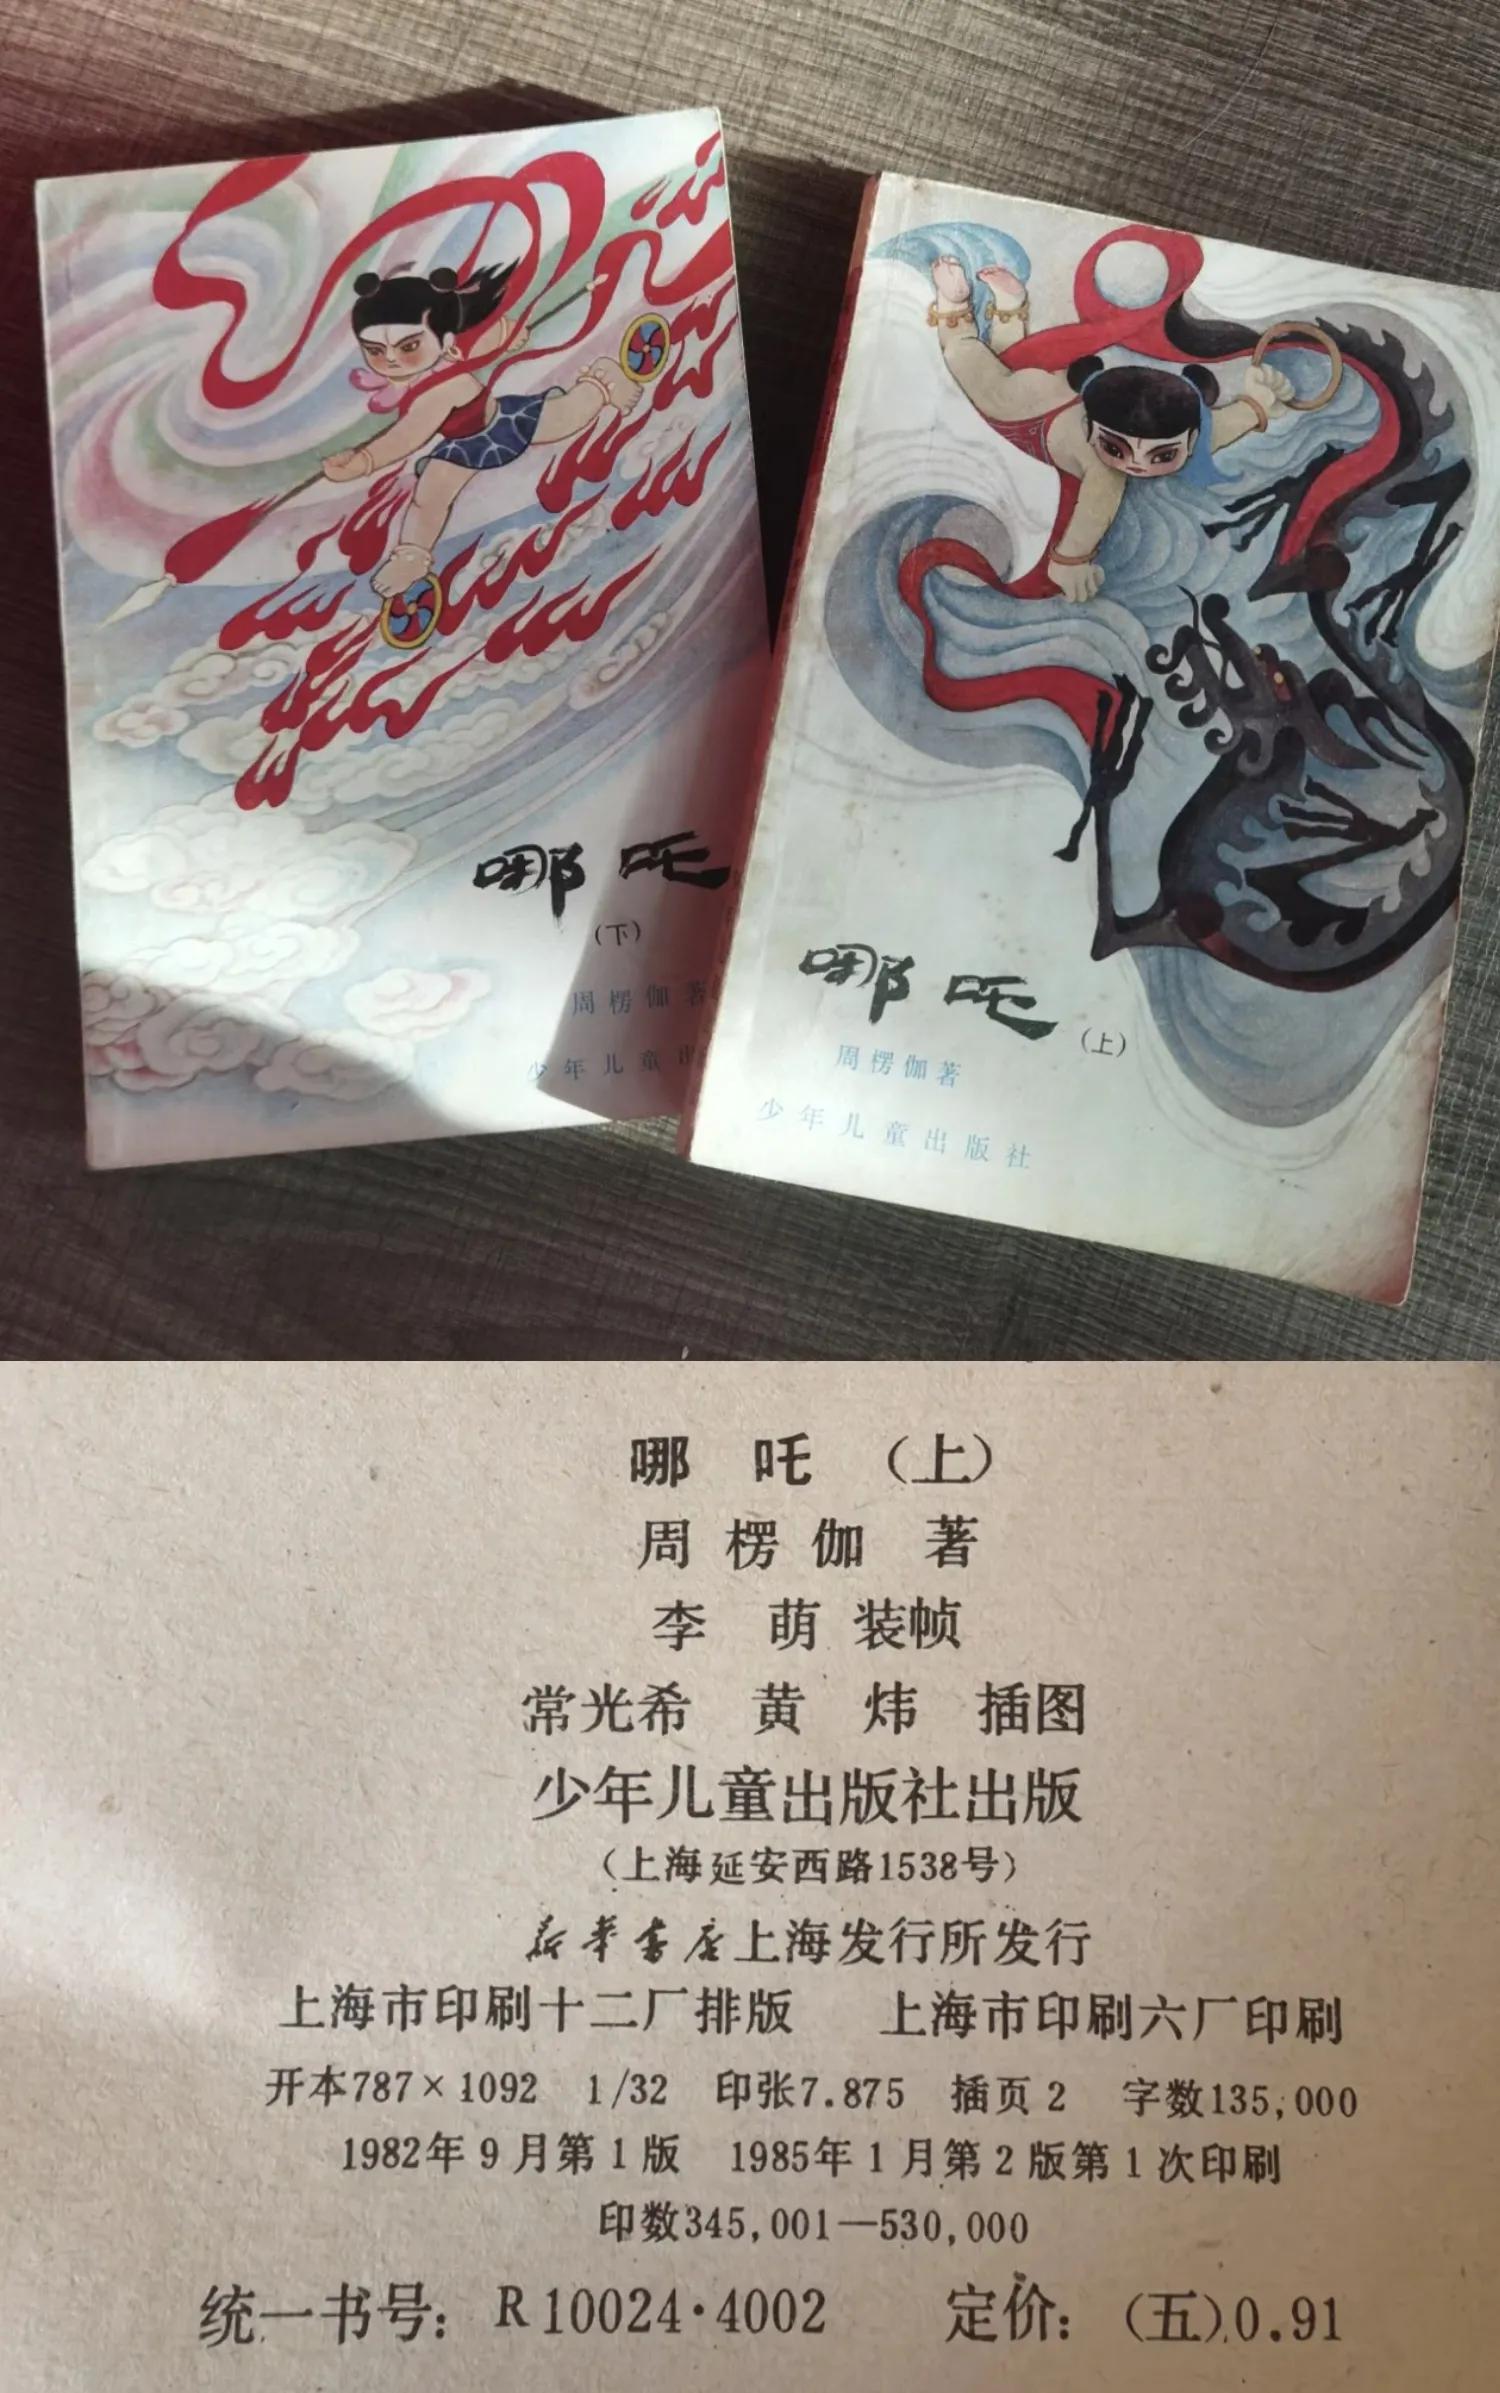 哪吒
(下)
周楞伽著
少年儿童出
哪吒(上)
周楞伽著
少年儿童出版社
哪吒(上)
周楞伽 著
李萌装帧
常光希 黄炜 插图
少年儿童出版社出版
(上海延安西路1538号)
新华书店上海发行所发行
上海市印刷十二厂排版 上海市印刷六厂印刷
开本787×1092 1/32 印张7.875 插页2 字数135,000
1982年9月第1版 1985年1月第2版第1次印刷
印数345,001—530,000
统一书号:R10024·4002 定价:(五)0.91